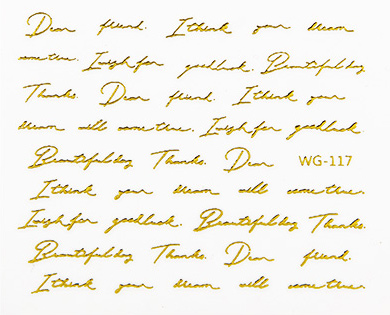 Dear friend. I think your dream
come true. I wish for good luck. Beautiful day
Thanks. Dear friend. I think your
dream will come true. I wish for good luck.
Beautiful day Thanks. Dear WG-117
I think your dream will come true.
I wish for good luck. Beautiful day Thanks.
Beautiful day Thanks. Dear friend.
I think your dream will come true.